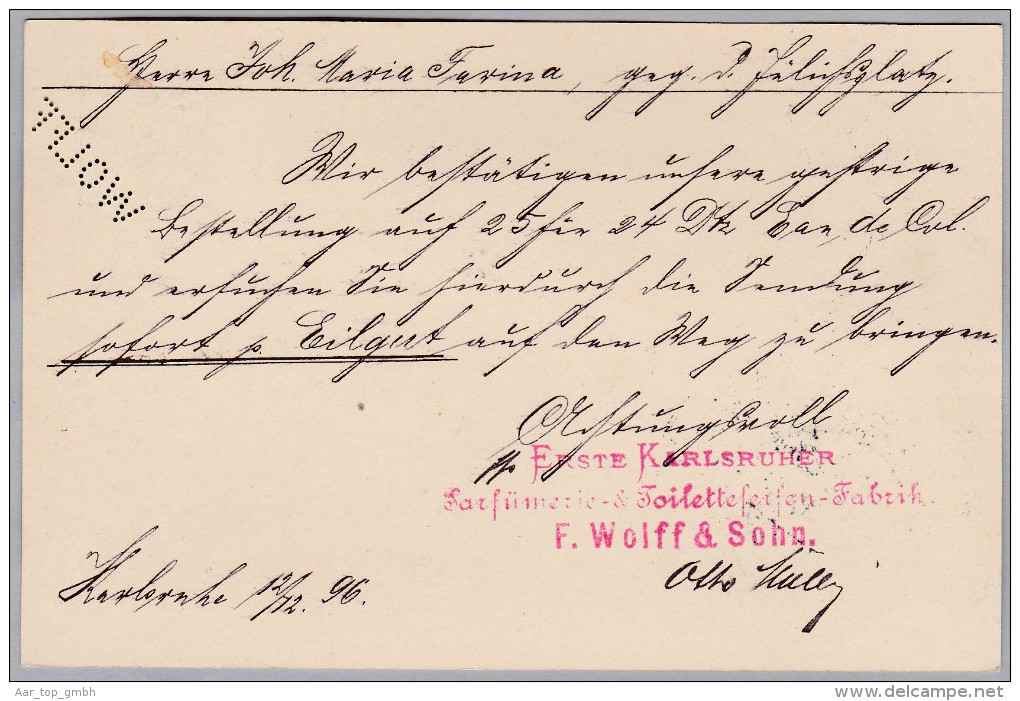 Herrn Joh. Maria Farina, geg. d. Jülichsplatz.
WOLFF
Wir bestätigen unsere gestrige
Bestellung auf 25 für 24 Dtz Eau de Col.
und ersuchen Sie hierdurch die Sendung
sofort p. Eilgut auf den Weg zu bringen.
Achtungsvoll
pp ERSTE KARLSRUHER
Parfümerie-& Toiletteseifen-Fabrik
F. Wolff & Sohn.
Otto
Karlsruhe 12/12. 96.
Aar_top_gmbh
delcampe.net